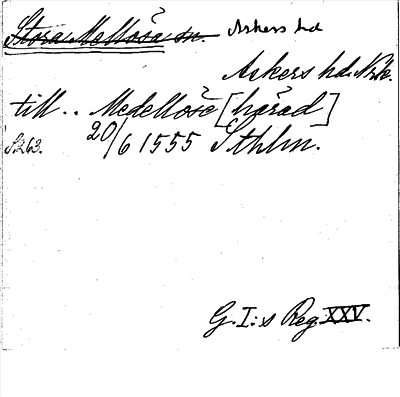 Stora Mellösa sn. Askers hd
Askers hd. Nrk.
till .. Medellösе [härad]
S263. 20/6 1555 Sthlm.
G. I:s Reg. XXV.